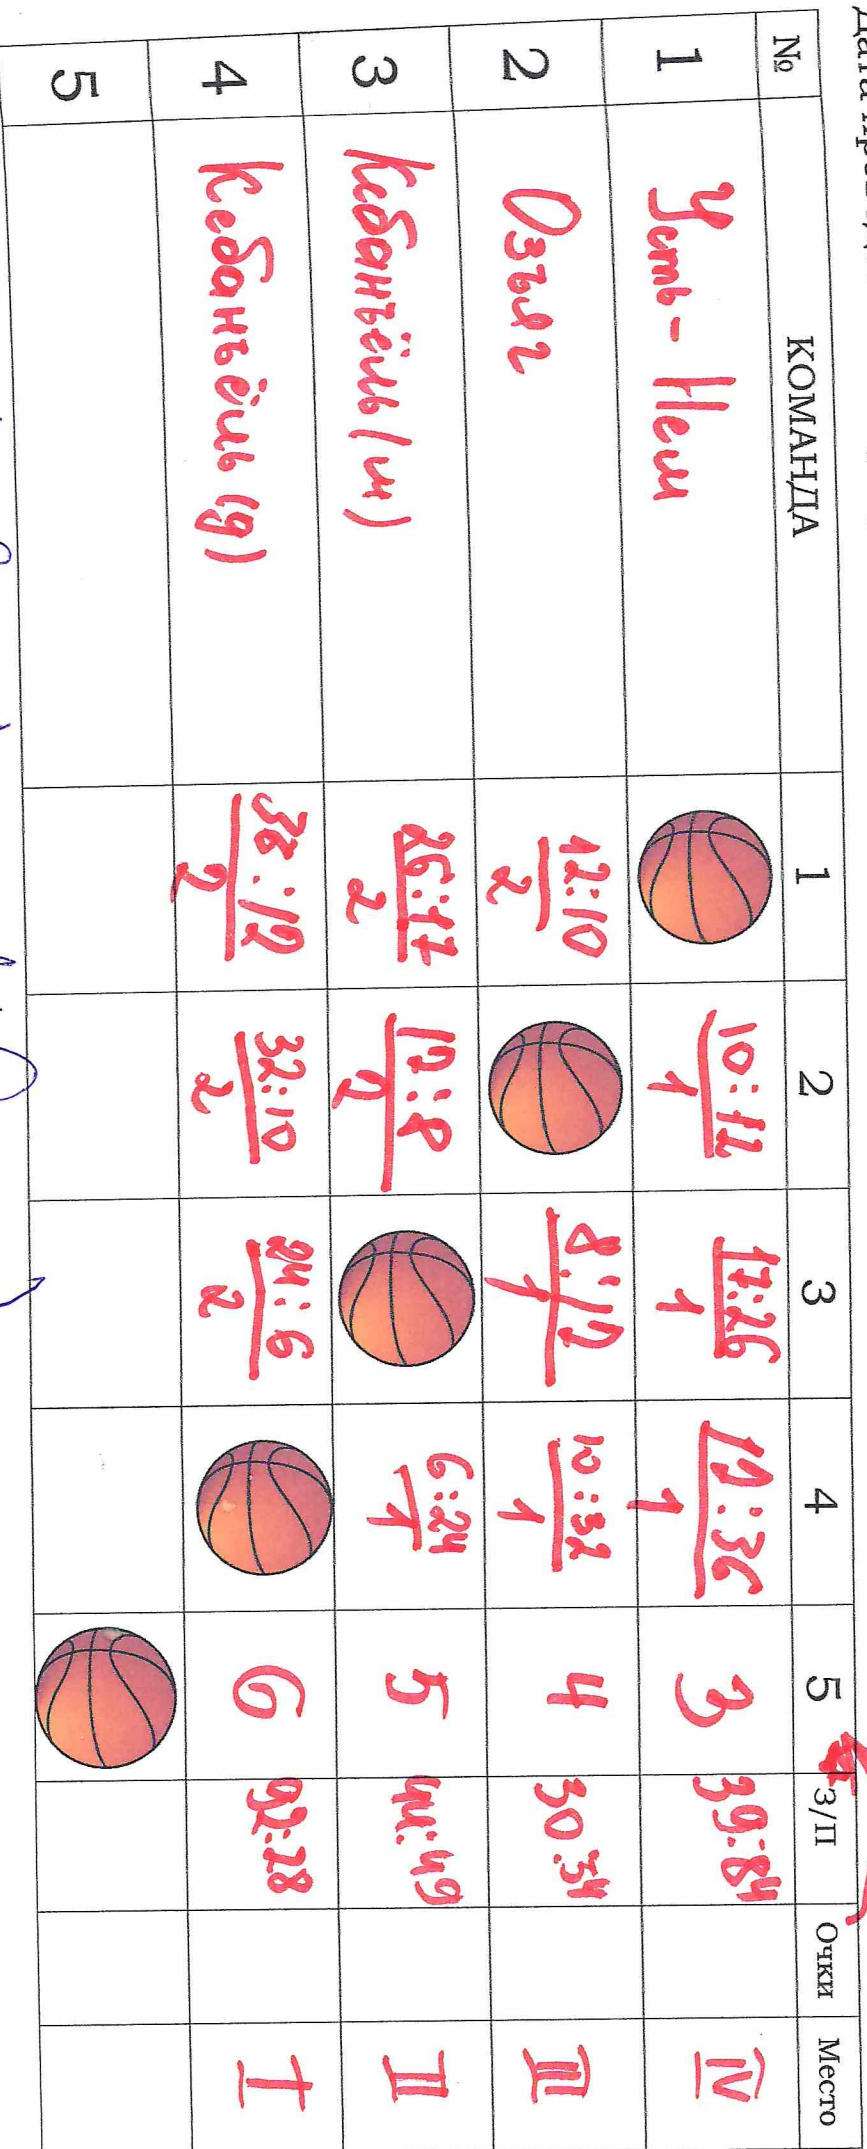 Дата
№ КОМАНДА 1 2 3 4 5 З/П Очки Место
1 Усть-Нем 10:12 17:26 12:36 3 39:84 IV
1 1 1
2 Озъяг 12:10 8:12 10:32 4 30:54 III
2 1 1
3 Кебанъёль (м) 26:17 12:8 6:24 5 44:49 II
2 2 1
4 Кебанъёль (д) 36:12 32:10 24:6 6 92:28 I
2 2 2
5